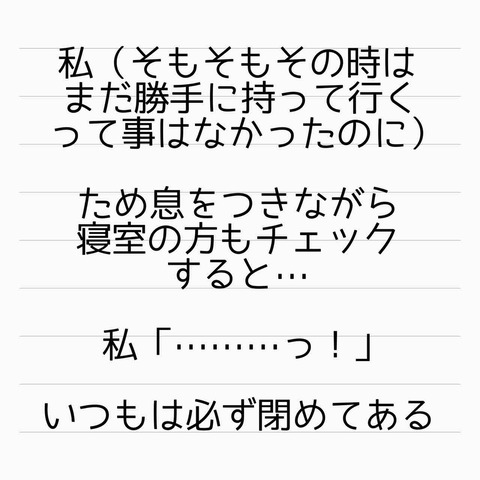 私（そもそもその時は
まだ勝手に持って行く
って事はなかったのに）
ため息をつきながら
寝室の方もチェック
すると…
私「………っ！」
いつもは必ず閉めてある